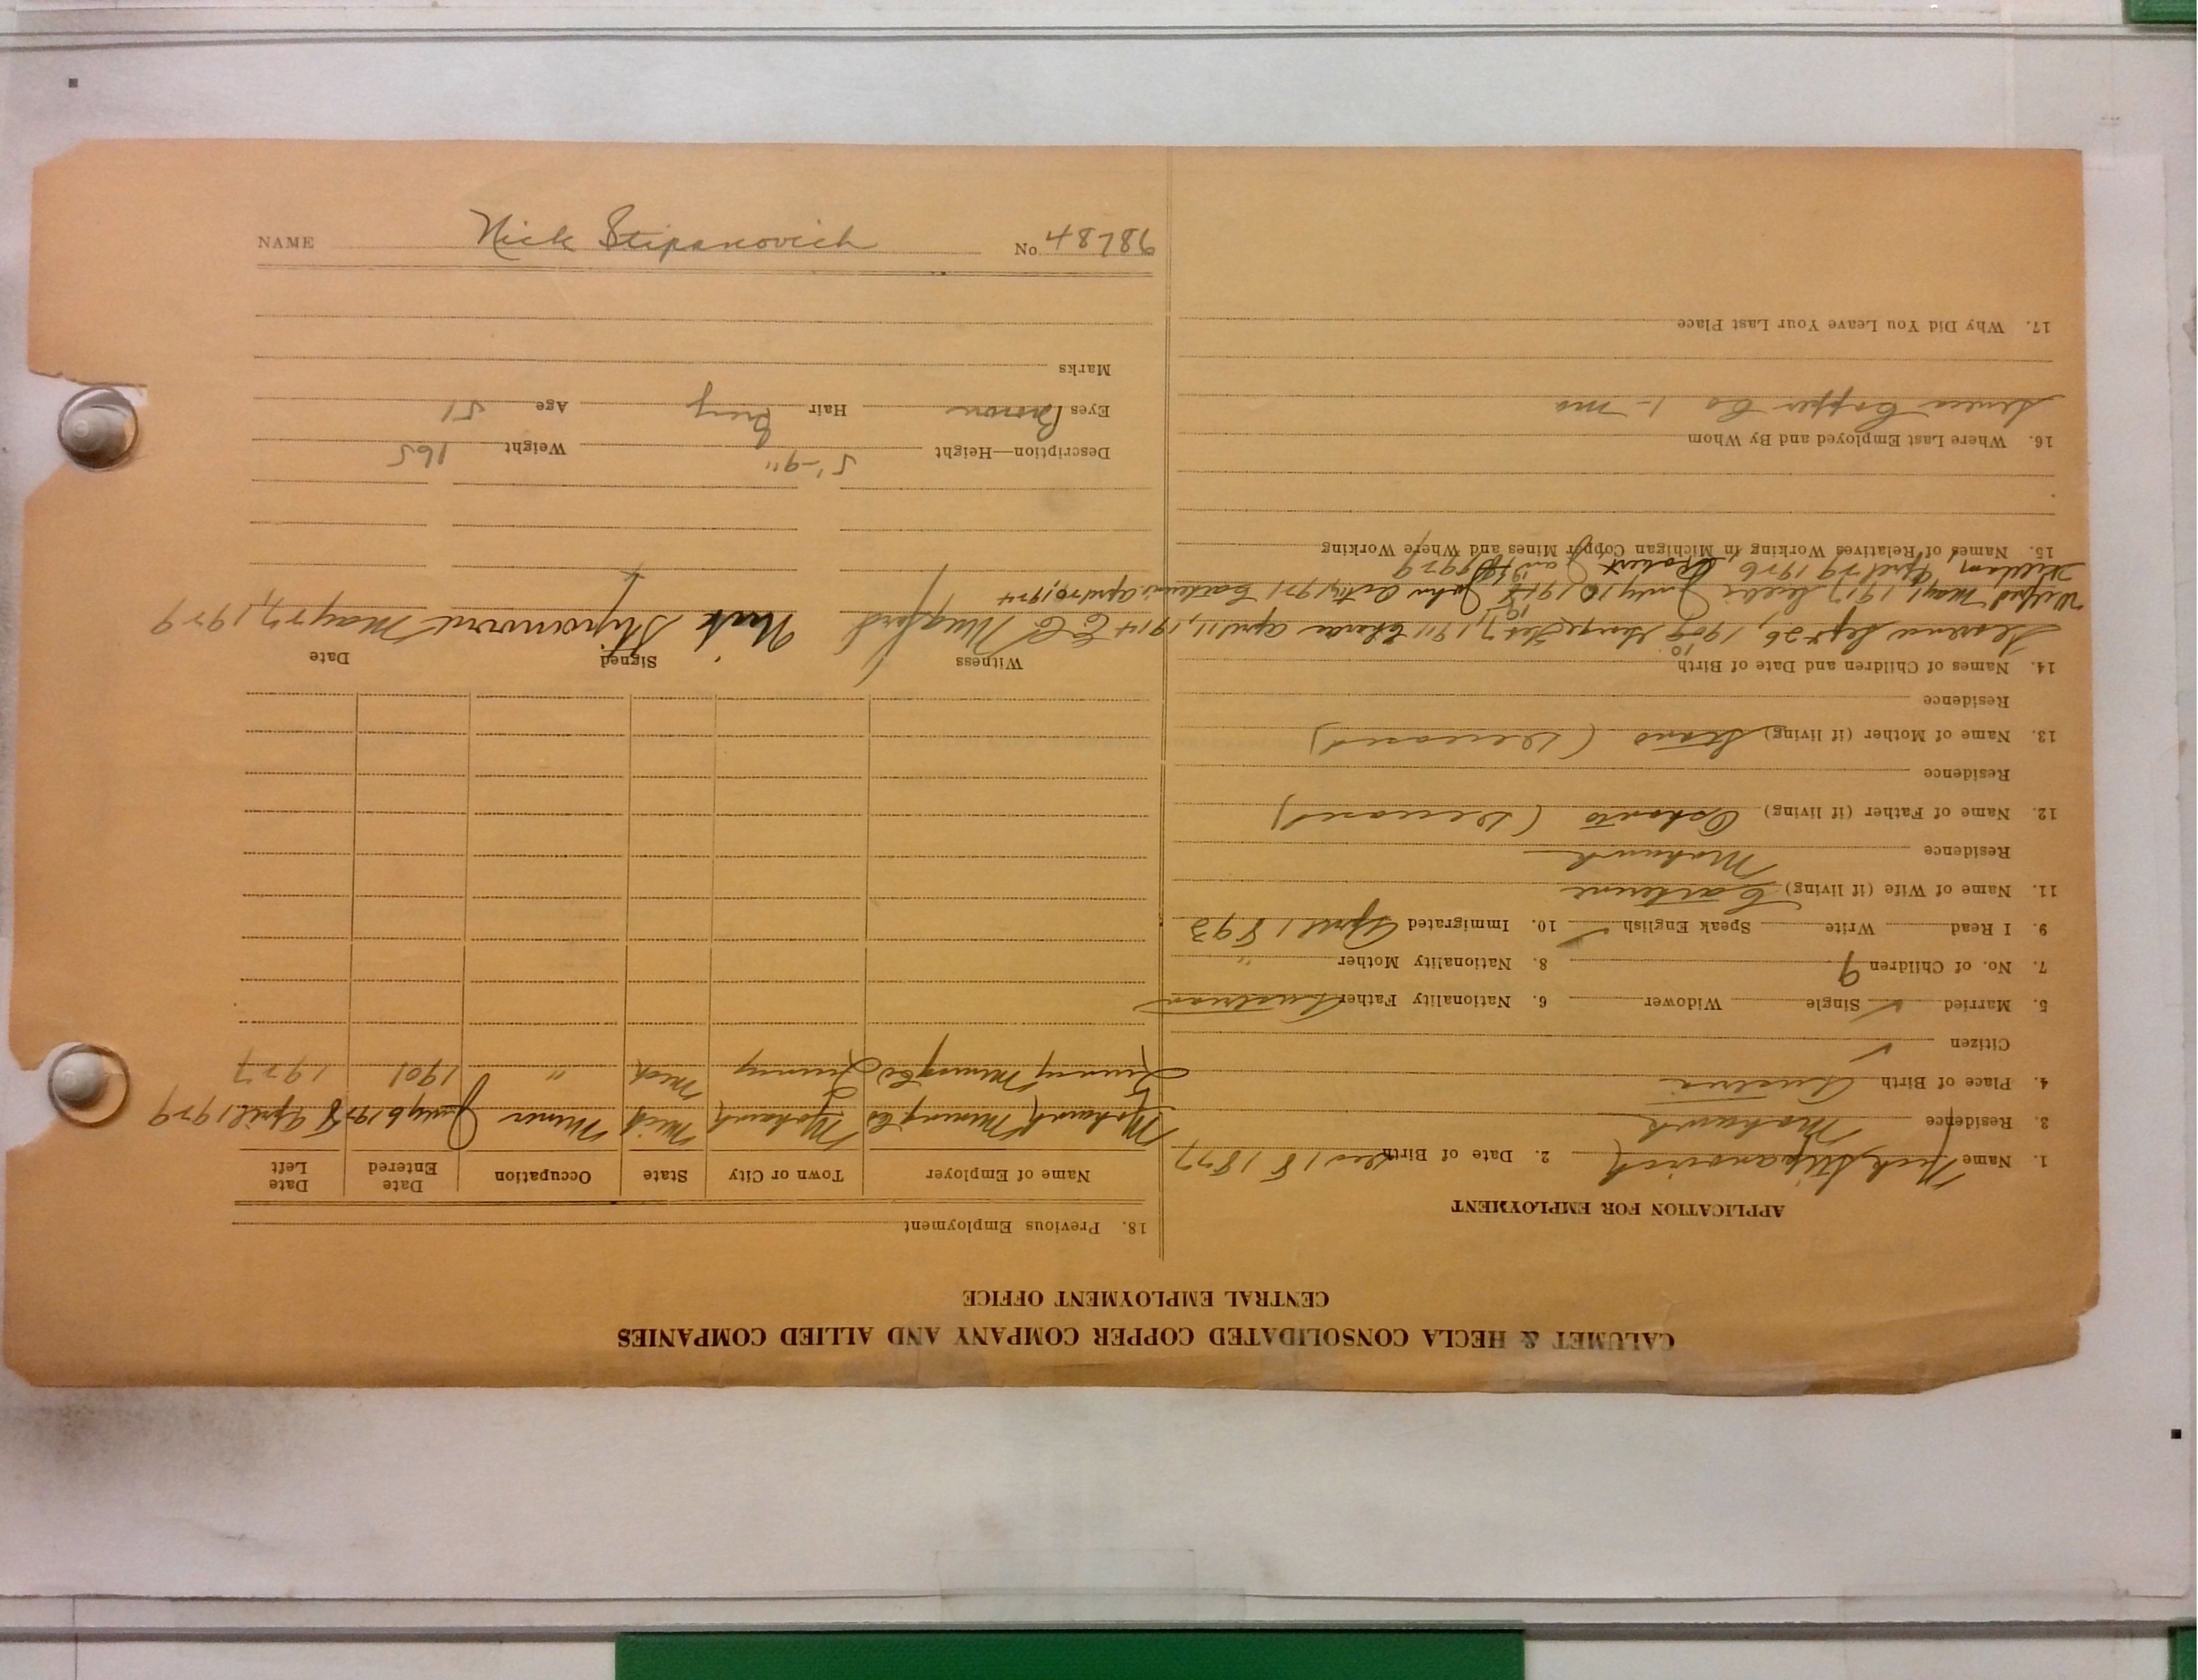 NAME Nick Stipanovich No. 48786
CALUMET & HECLA CONSOLIDATED COPPER COMPANY AND ALLIED COMPANIES
CENTRAL EMPLOYMENT OFFICE
APPLICATION FOR EMPLOYMENT
1. Name Nick Stipanovich 2. Date of Birth Dec 18 1877
3. Residence Mohawk
4. Place of Birth Austria
Citizen ✓
5. Married ✓ Single Widower 6. Nationality Father Austrian
7. No. of Children 9 8. Nationality Mother "
9. I Read Write Speak English ✓ 10. Immigrated April 1893
11. Name of Wife (if living) Catherine
Residence Mohawk
12. Name of Father (if living) (Deceased)
Residence
13. Name of Mother (if living) (Deceased)
Residence
14. Names of Children and Date of Birth
Sept 26, 1909 George 7, 1911 April 11, 1914
Wilfred May 1, 1917 July 10 1918 John Oct 19, 1921 Catherine April 20, 1924
William, April 29 1926 Robert Jan 1929
15. Names of Relatives Working in Michigan Copper Mines and Where Working
16. Where Last Employed and By Whom
Seneca Copper Co 1- mo
17. Why Did You Leave Your Last Place
18. Previous Employment
Name of Employer Town or City State Occupation Date Entered Date Left
Mohawk Mining Co Mohawk Mich Miner 1928 April 1929
Quincy Mining Co Quincy Mich " 1901 1927
Witness Signed Date
Mugford Nick May 27, 1929
Description—Height 5'-9" Weight 165
Eyes Brown Hair Grey Age 51
Marks